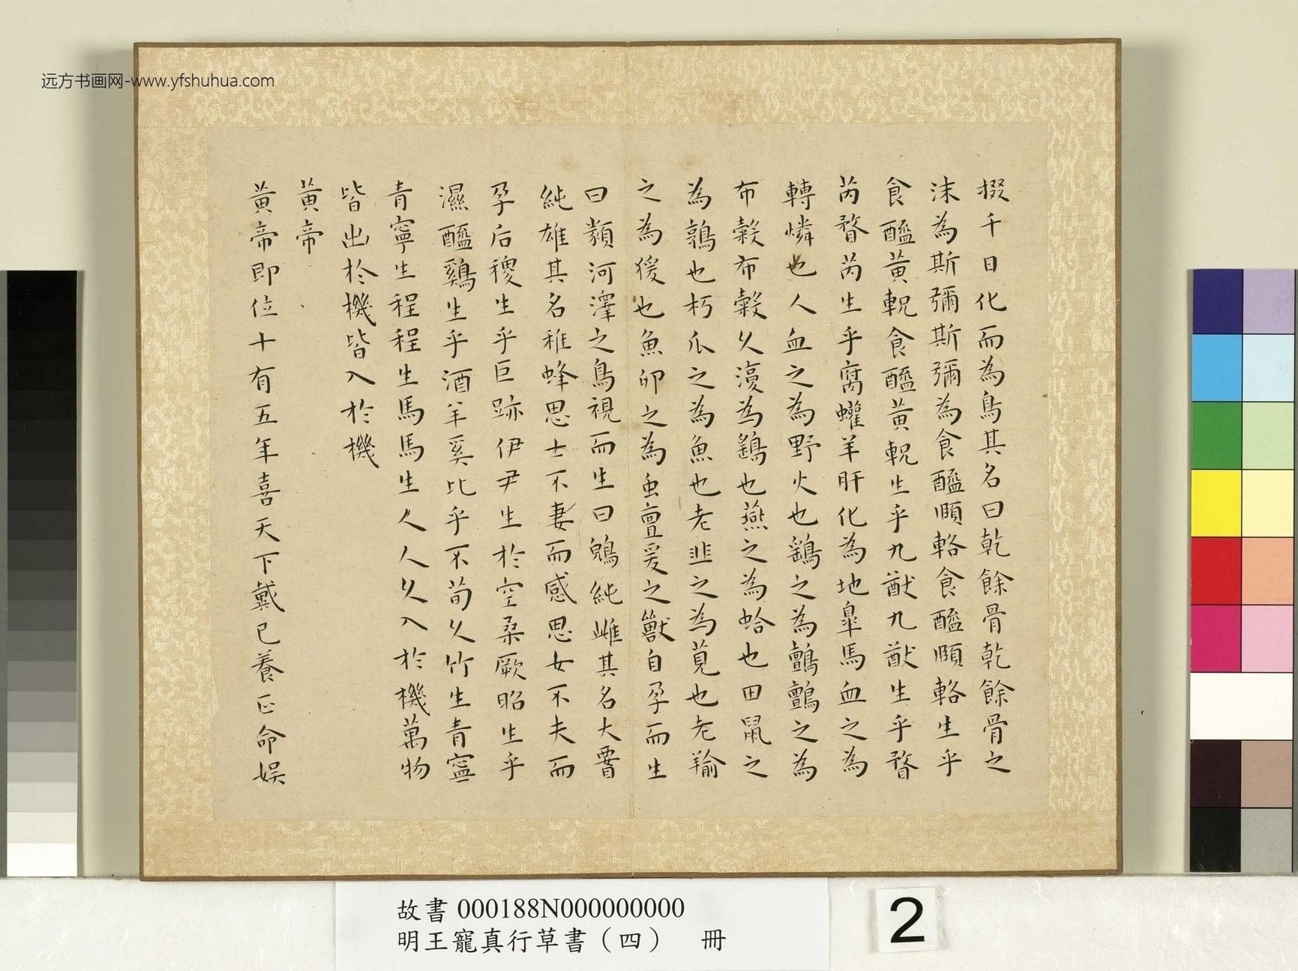 远方书画网-www.yfshuhua.com
掇千日化而為鳥其名曰乾餘骨乾餘骨之
沫為斯彌斯彌為食醯頤輅食醯頤輅生乎
食醯黃軦食醯黃軦生乎九猷九猷生乎瞀
芮瞀芮生乎腐蠸羊肝化為地皐馬血之為
轉憐也人血之為野火也鷂之為鸇鸇之為
布穀布穀久復為鷂也燕之為蛤也田鼠之
為鶉也朽瓜之為魚也老韭之為莧也老羭
之為猨也魚卵之為虫亶爰之獸自孕而生
曰類河澤之鳥視而生曰鶂純雌其名大䁂
純雄其名稚蜂思士不妻而感思女不夫而
孕后稷生乎巨跡伊尹生於空桑厥昭生乎
濕醯鷄生乎酒羊奚比乎不荀久竹生青寧
青寧生程程生馬馬生人人久入於機萬物
皆出於機皆入於機
黃帝
黃帝即位十有五年喜天下戴已養正命娛
故書000188N000000000
明王寵真行草書（四） 冊
2